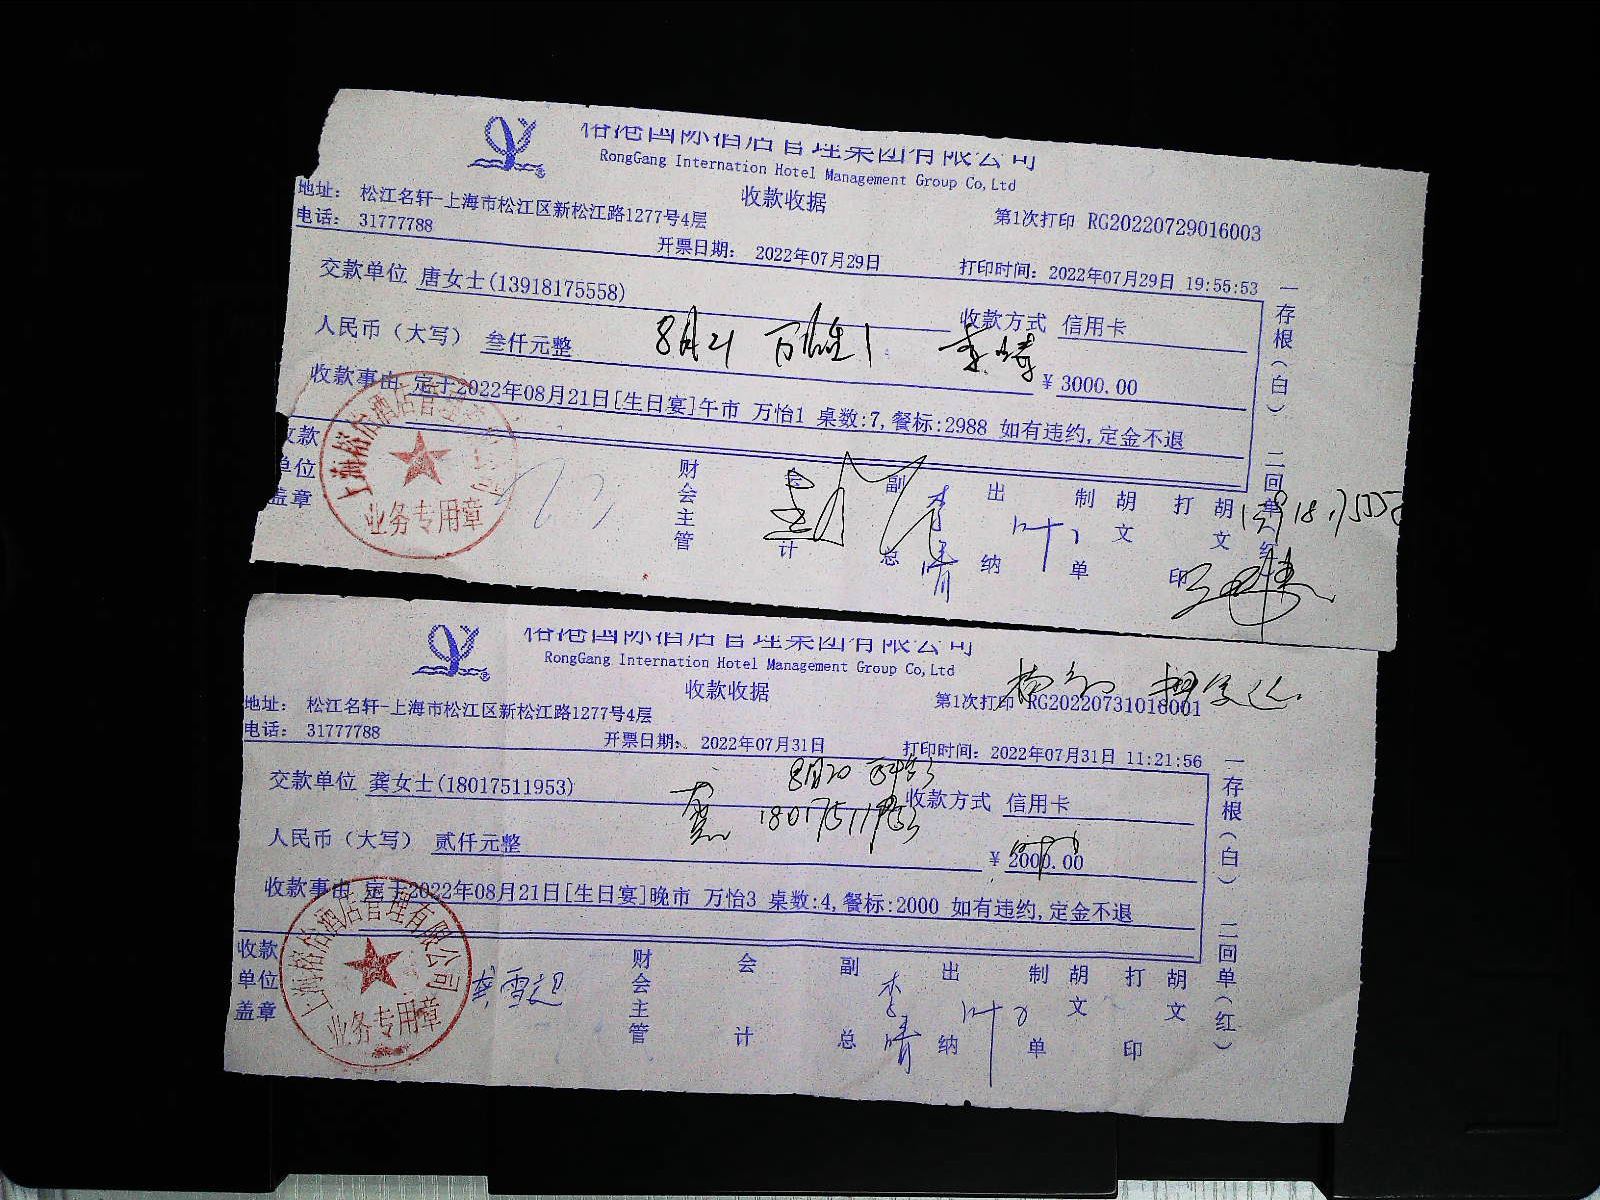 裕港国际酒店管理集团有限公司
RongGang Internation Hotel Management Group Co,Ltd
收款收据
地址： 松江名轩-上海市松江区新松江路1277号4层
第1次打印 RG20220729016003
电话： 31777788
开票日期： 2022年07月29日
打印时间：2022年07月29日 19:55:53
交款单位 唐女士(13918175558)
收款方式 信用卡
人民币（大写） 叁仟元整
8月21 万怡1
￥3000.00
收款事由 定于2022年08月21日[生日宴]午市 万怡1 桌数:7,餐标:2988 如有违约,定金不退
收款单位盖章
财会主管
会计
副总
李婧
出纳
叶
制单
胡文
打印
胡文
一存根（白） 二回单（红）
上海裕怡酒店管理有限公司
业务专用章
裕港国际酒店管理集团有限公司
RongGang Internation Hotel Management Group Co,Ltd
收款收据
地址： 松江名轩-上海市松江区新松江路1277号4层
第1次打印 RG20220731016001
电话： 31777788
开票日期： 2022年07月31日
打印时间：2022年07月31日 11:21:56
8月20
交款单位 龚女士(18017511953)
收款方式 信用卡
龚 18017511953
人民币（大写） 贰仟元整
￥2000.00
收款事由 定于2022年08月21日[生日宴]晚市 万怡3 桌数:4,餐标:2000 如有违约,定金不退
收款单位盖章
财会主管
会计
副总
李婧
出纳
叶
制单
胡文
打印
胡文
一存根（白） 二回单（红）
上海裕怡酒店管理有限公司
业务专用章